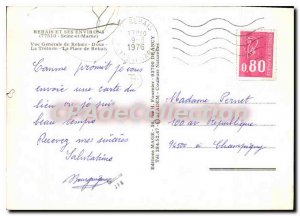 REBAIS ET SES ENVIRONS
(77510 - Seine-et-Marne)
Vue Générale de Rebais - Doue
La Trétoire - La Place de Rebais
REBAIS
1976
0,80
Comme promis je vous
envoie une carte du
lieu où je suis
beau temps
Recevez mes sincères
Salutations
Madame Pernet
100 av République
94500 à Champigny